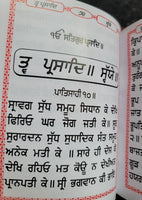 ਤ੍ਵ ਪ੍ਰਸਾਦਿ॥
ੴ ਸਤਿਗੁਰ ਪ੍ਰਸਾਦਿ॥
ਤ੍ਵ ਪ੍ਰਸਾਦਿ॥ ਸ੍ਵੈਯੇ॥
ਪਾਤਿਸਾਹੀ ੧੦॥
ਸ੍ਰਾਵਗ ਸੁੱਧ ਸਮੂਹ ਸਿਧਾਨ ਕੇ
ਫਿਰਿਓ ਘਰ ਜੋਗ ਜਤੀ ਕੇ॥
ਸੁਰਾਰਦਨ ਸੁੱਧ ਸੁਧਾਦਿਕ ਸੰਤ ਸਮੂਹ
ਅਨੇਕ ਮਤੀ ਕੇ॥ ਸਾਰੇ ਹੀ
ਦੇਖਿ ਰਹਿਓ ਮਤ ਕੋਊ ਨ ਦੇਖੀਅਤ
ਪ੍ਰਾਨਪਤੀ ਕੇ॥ ਸ੍ਰੀ ਭਗਵਾਨ ਕੀ